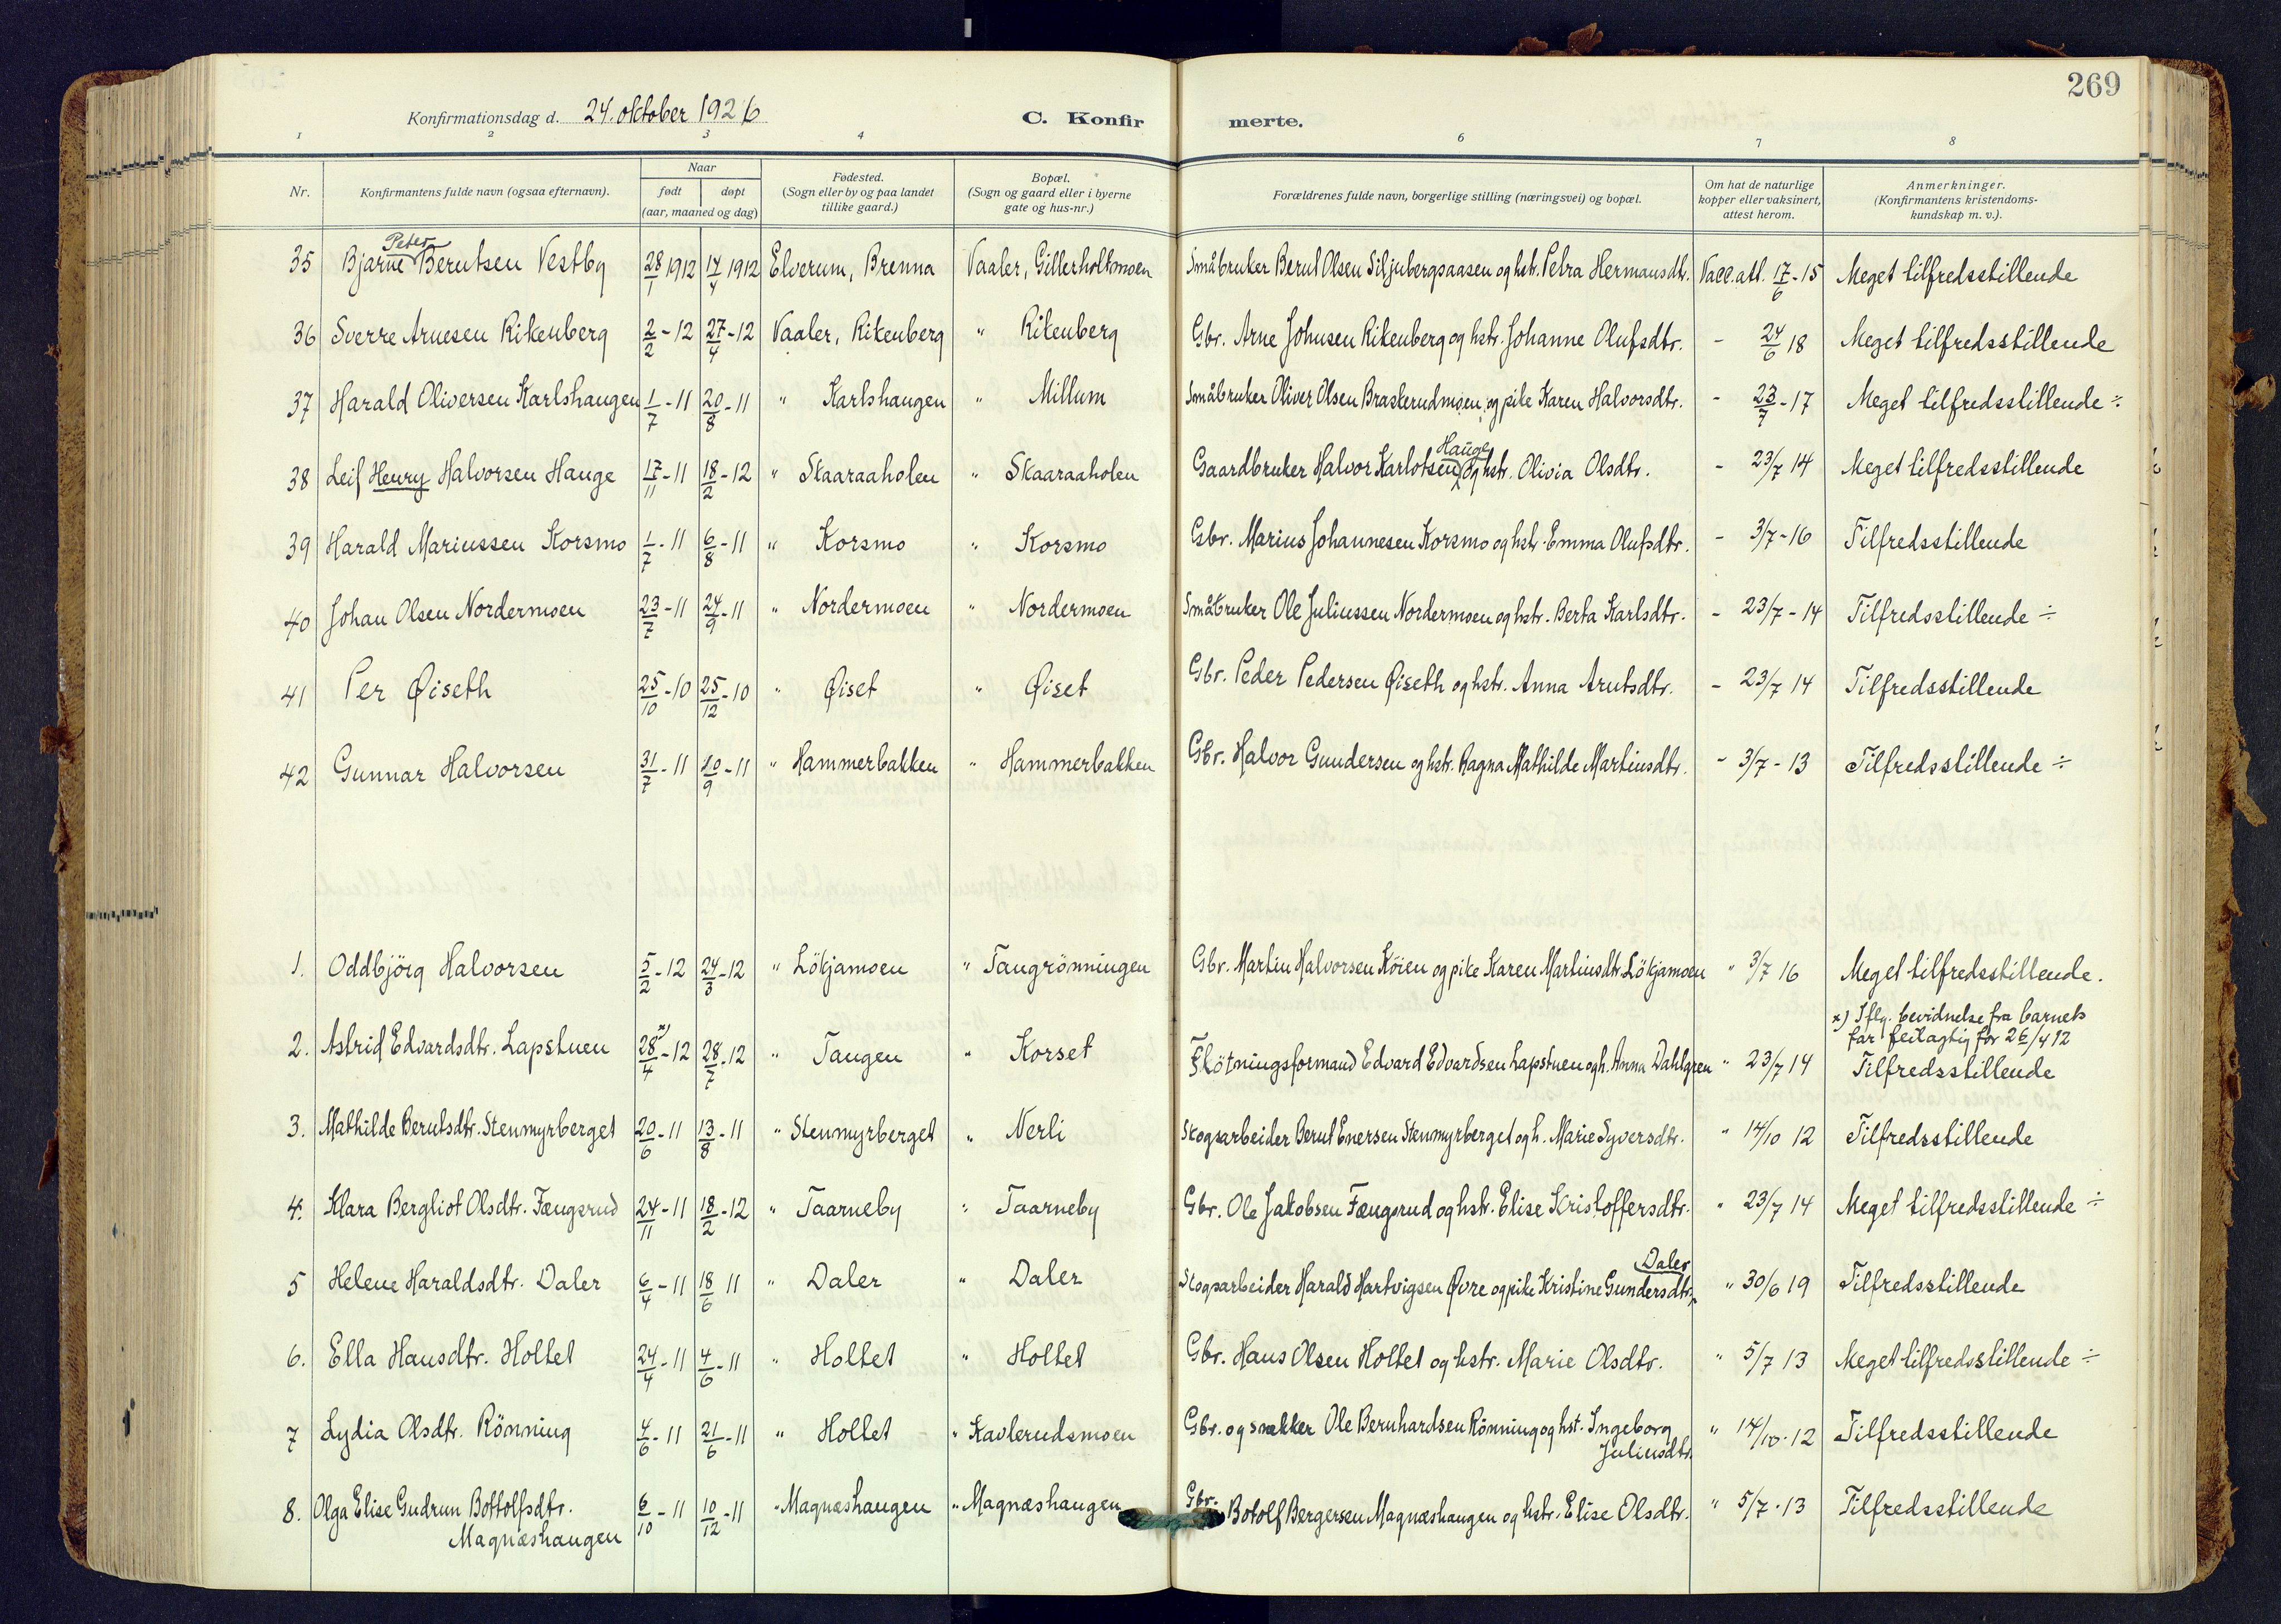 269
Konfirmationsdag d. 24. oktober 1926 C. Konfirmerte.
1 2 3 4 5 6 7 8
Nr. Konfirmantens fulde navn (ogsaa efternavn). Naar født døpt (aar, maaned og dag) Fødested. (Sogn eller by og paa landet tillike gaard.) Bopæl. (Sogn og gaard eller i byerne gate og hus-nr.) Forældrenes fulde navn, borgerlige stilling (næringsvei) og bopæl. Om hat de naturlige kopper eller vaksinert, attest herom. Anmerkninger. (Konfirmantens kristendoms-kundskap m. v.).
35 Bjarne Peter Berntsen Vestby 28/1 1912 14/4 1912 Elverum, Brenna Vaaler, Gillerholtmoen Småbruker Bernt Olsen Siljubergsaasen og hstr. Petra Hermansdtr. Vacc. att. 17/6-15 Meget tilfredsstillende
36 Sverre Arnesen Rikenberg 2/2-12 27/4-12 Vaaler, Rikenberg " Rikenberg Gbr. Arne Johnsen Rikenberg og hstr. Johanne Olufsdtr. - 24/6 18 Meget tilfredsstillende
37 Harald Oliversen Karlshaugen 1/7-11 20/8-11 " Karlshaugen " Millum Småbruker Oliver Olsen Braskerudmoen og pike Karen Halvorsdtr. - 23/7-17 Meget tilfredsstillende ÷
38 Leif Henry Halvorsen Hauge 17/11-11 18/2-12 " Skaaraaholen " Skaaraaholen Gaardbruker Halvor Karlotsen Hauge og hstr. Olivia Olsdtr. - 23/7 14 Meget tilfredsstillende
39 Harald Mariussen Korsmo 1/7-11 6/8-11 " Korsmo " Korsmo Gbr. Marius Johannesen Korsmo og hstr. Emma Olufsdtr. - 3/7-16 Tilfredsstillende
40 Johan Olsen Nordermoen 23/7-11 24/9-11 " Nordermoen " Nordermoen Småbruker Ole Juliussen Nordermoen og hstr. Berta Karlsdtr. - 23/7-14 Tilfredsstillende ÷
41 Per Øiseth 25/10-10 25/12-10 " Øiset " Øiset Gbr. Peder Pedersen Øiseth og hstr. Anna Arntsdtr. - 23/7 14 Tilfredsstillende
42 Gunnar Halvorsen 31/7-11 10/9-11 " Hammerbakken " Hammerbakken Gbr. Halvor Gundersen og hstr. Ragna Mathilde Martinsdtr. - 3/7-13 Tilfredsstillende ÷
1. Oddbjörg Halvorsen 5/2-12 24/3-12 " Lökjamoen " Taugrönningen Gbr. Martin Halvorsen Köien og pike Karen Martinsdtr. Lökjamoen " 3/7 16 Meget tilfredsstillende.
x) Iflg. bevidnelse fra barnets
far feilagtig for 26/4 12
2. Astrid Edvardsdtr. Lapstuen 28/4 x)-12 28/7-12 " Taugen " Korset Flötningsformand Edvard Edvardsen Lapstuen og h. Anna Dahlgren " 23/7 14 Tilfredsstillende
3. Mathilde Berntsdtr. Stenmyrberget 20/6-11 13/8-11 " Stenmyrberget " Nerli Skogsarbeider Bernt Enersen Stenmyrberget og h. Marie Syversdtr. " 14/10 12 Tilfredsstillende
4. Klara Bergliot Olsdtr. Fængsrud 24/11-11 18/2-12 " Taarneby " Taarneby Gbr. Ole Jakobsen Fængsrud og hstr. Elise Kristoffersdtr. " 23/7 14 Meget tilfredsstillende ÷
5 Helene Haraldsdtr. Daler 6/4-11 18/6 11 " Daler " Daler Skogsarbeider Harald Hartvigsen Øvre og pike Kristine Gundersdtr. Daler " 30/6 19 Tilfredsstillende
6. Ella Hansdtr. Holtet 24/4-11 4/6-11 " Holtet " Holtet Gbr. Hans Olsen Holtet og hstr. Marie Olsdtr. " 5/7 13 Meget tilfredsstillende ÷
7 Lydia Olsdtr. Rönning 4/6-11 21/6-11 " Holtet " Kavlerudsmoen Gbr. og snekker Ole Bernhardsen Rönning og hst. Ingeborg " 14/10-12 Tilfredsstillende
Juliusdtr.
8. Olga Elise Gudrun Bottolfsdtr. 6/10-11 10/12-11 " Magnæshaugen " Magnæshaugen Gbr. Botolf Bergersen Magnæshaugen og hstr. Elise Olsdtr. " 5/7-13 Tilfredsstillende
Magnæshaugen